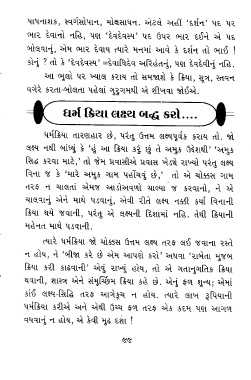 પાપનાશક, સ્વર્ગસોપાન, મોક્ષસાધન. એટલે અહીં 'દર્શન' પદ પર
ભાર દેવાનો નહિ, પણ 'દેવદેવસ્ય' પદ ઉપર ભાર દઈને એ પદ
બોલવાનું, એમ ભાર દેવાય ત્યારે મનમાં આવે કે દર્શન તો ભાઈ !
કોનું ? તો કે 'દેવદેવસ્ય' =દેવાધિદેવ અરિહંતનું, પણ દેવદેવીનું નહિ.
આ ભૂલો પર ખ્યાલ કરાય તો સમજાશે કે ક્રિયા, સૂત્ર, સ્તવન
વગેરે કરતા-બોલતા પહેલાં ગુરુગમથી એ શીખવા જોઈએ.
ધર્મ ક્રિયા લક્ષ્ય બદ્ધ કરો....
ધર્મક્રિયા તારણહાર છે, પરંતુ ઉત્તમ લક્ષ્યપૂર્વક કરાય તો. જો
લક્ષ્ય નથી બાંધ્યું કે 'હું આ ક્રિયા કરું છું તે અમુક ઉદ્દેશથી' 'અમુક
સિદ્ધ કરવા માટે,' તો જેમ પ્રવાસીએ પ્રવાસ ખેડ્યે રાખ્યો પરંતુ લક્ષ્ય
વિના જ કે 'મારે અમુક ગામ પહોંચવું છે,' તો એ ચોક્કસ ગામ
તરફ ન ચાલતાં એમજ આડોઅવળો ચાલ્યા જ કરવાનો, ને એ
ચાલવાનું એને માથે પડવાનું, એવી રીતે લક્ષ્ય નક્કી કર્યા વિનાની
ક્રિયા થયે જવાની, પરંતુ એ લક્ષ્યની દિશામાં નહિ. તેથી ક્રિયાની
મહેનત માથે પડવાની.
ત્યારે ધર્મક્રિયા જો ચોક્કસ ઉત્તમ લક્ષ્ય તરફ લઈ જવાના રસ્તે
ન હોય, ને 'બીજા કરે છે એમ આપણે કરો' અથવા 'રાબેતા મુજબ
ક્રિયા કરી કાઢવાની' એવું રાખ્યું હોય, તો એ ગતાનુગતિક ક્રિયા
થવાની, શાસ્ત્ર એને સંમૂર્ચ્છિમ ક્રિયા કહે છે. એનું ફળ શૂન્ય; એમાં
કાંઈ લક્ષ્ય-સિદ્ધિ તરફ આગેકૂચ ન હોય. ત્યારે લાખ રૂપિયાની
ધર્મક્રિયા કરીએ અને એથી ઉચ્ચ ફળ તરફ એક કદમ પણ આગળ
વધવાનું ન હોય, એ કેવી મૂઢ દશા !
૯૯